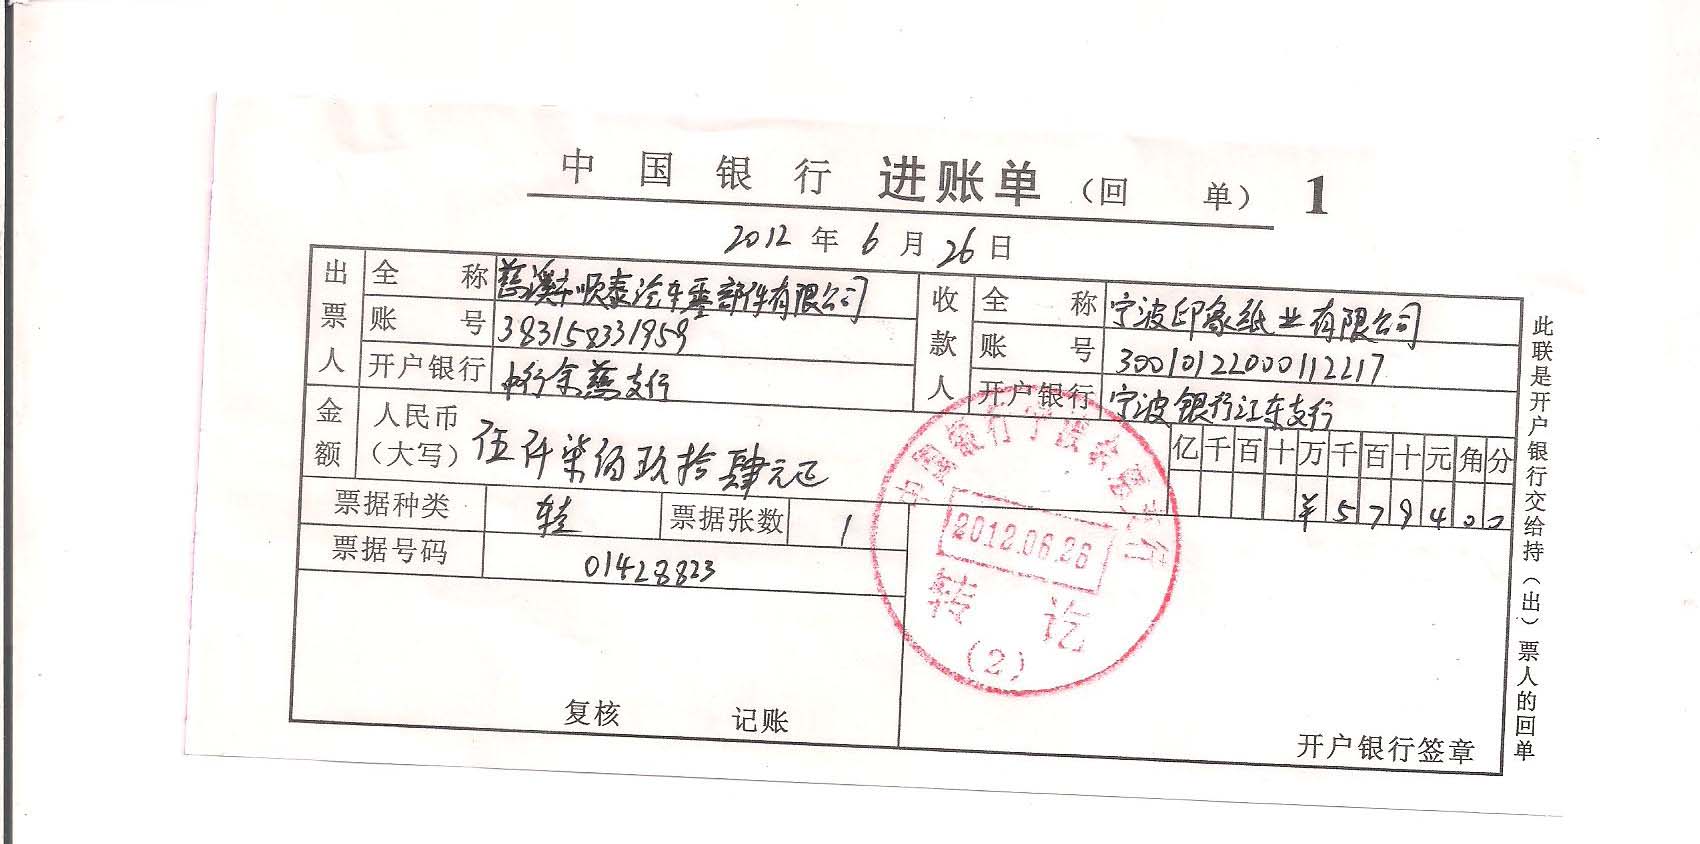 中国银行 进账单（回 单） 1
2012 年 6 月 26 日
出票人 全 称 慈溪市顺泰汽车零部件有限公司 收款人 全 称 宁波印象纸业有限公司
账 号 383158331959 账 号 30010122000112217
开户银行 中行余慈支行 开户银行 宁波银行江东支行
金额 人民币（大写） 伍仟柒佰玖拾肆元正 亿千百十万千百十元角分
¥579400
票据种类 转支 票据张数 1
票据号码 01428823
中国银行宁波余慈支行
2012.06.26
转讫
（2）
复核 记账
开户银行签章
此联是开户银行交给持（出）票人的回单